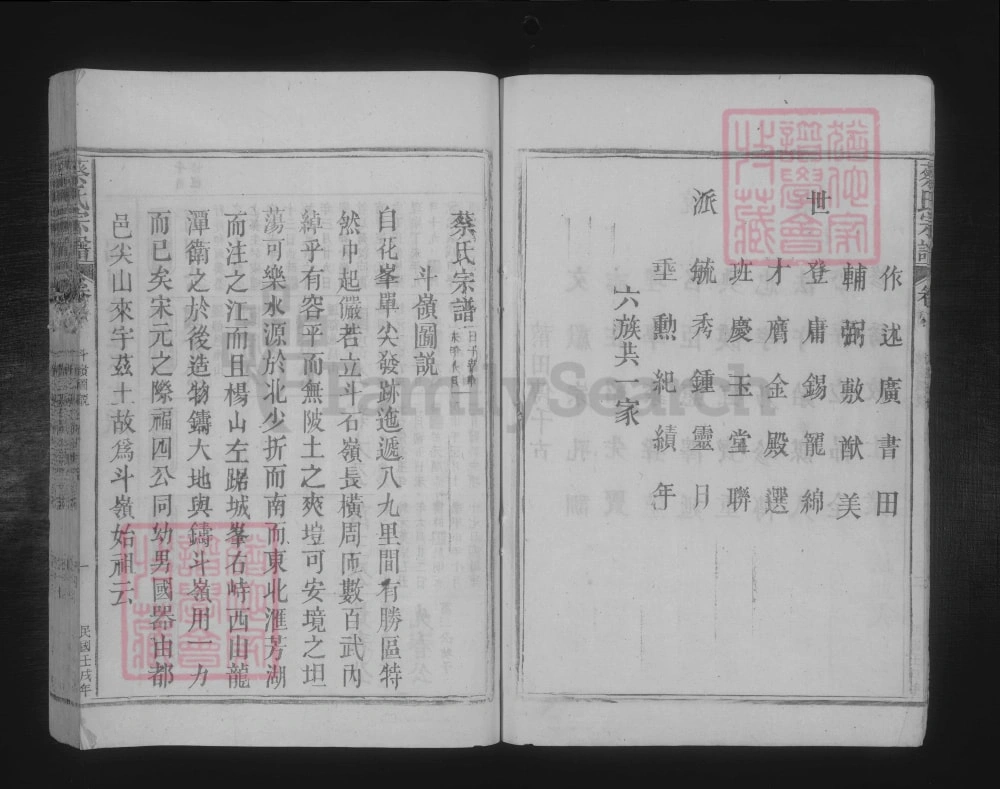 蔡氏宗譜
作述廣書田
輔弼敷猷美
世 登庸錫寵綿
才膺金殿選
班慶玉堂聯
派 毓秀鍾靈日
垂勳紀績年
六族共一家
蔡氏宗譜
斗嶺圖說
自花峯單尖發跡迤遞八九里間有勝區特
然中起儼若立斗石嶺長橫周匝數百武內
綽乎有容平而無陂土之爽塏可安境之坦
蕩可樂水源於北少折而南而東北滙芳湖
而注之江而且楊山左踞城峯右峙西山龍
潭衛之於後造物鑄大地與鑄斗嶺用一力
而已矣宋元之際福四公同幼男國器由都
邑尖山來宇茲土故爲斗嶺始祖云
蔡氏宗譜
斗嶺圖說
一
民國壬戌年
FamilySearch